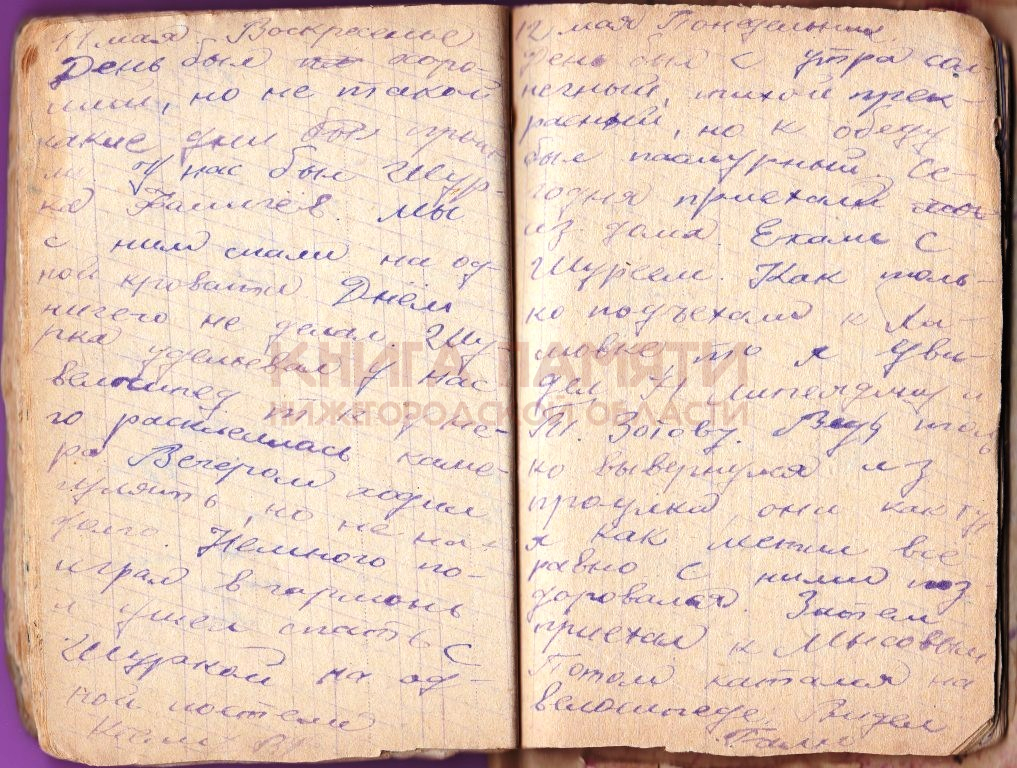 11 мая. Воскресенье
День был хоро-
ший, но не такой
какие дни были прош-
ли У нас был Шур-
ка Мы
с ним спали на од-
ной кровати Днём
ничего не делал. Шу-
рка у нас
велосипед так у не-
го расклеилась каме-
ра Вечером ходил
гулять, но не на-
долго. Немного по-
играл в гармонь
и ушел спать с
Шуркой на од-
ной постели
12 мая Понедельник
День был с утра сол-
нечный, тихой прек-
расный, но к обеду
был пасмурный. Се-
годня приехали
из дома. Ехали с
Шурсем. Как толь-
ко подъехали к
то я уви-
дел Н. и
Т. Зотову. Ведь толь
ко вывернулся из
проулка они как тут
я как все
равно с ними поз-
доровался. Затем
приехал к Мысовым
Потом катался на
велосипеде. Видел
КНИГА ПАМЯТИ
НИЖЕГОРОДСКОЙ ОБЛАСТИ